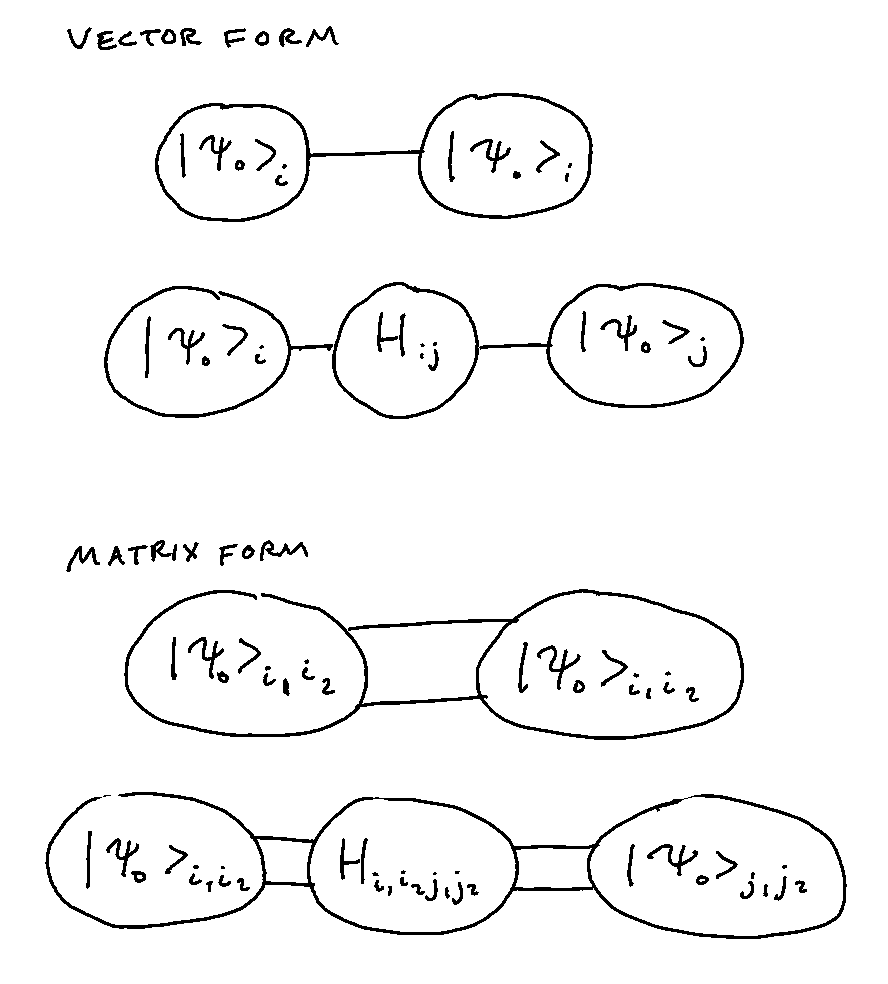 VECTOR FORM
|Ψ₀>ᵢ |Ψ₀>ᵢ
|Ψ₀>ᵢ Hᵢⱼ |Ψ₀>ⱼ
MATRIX FORM
|Ψ₀>ᵢ₁ᵢ₂ |Ψ₀>ᵢ₁ᵢ₂
|Ψ₀>ᵢ₁ᵢ₂ Hᵢ₁ᵢ₂ⱼ₁ⱼ₂ |Ψ₀>ⱼ₁ⱼ₂